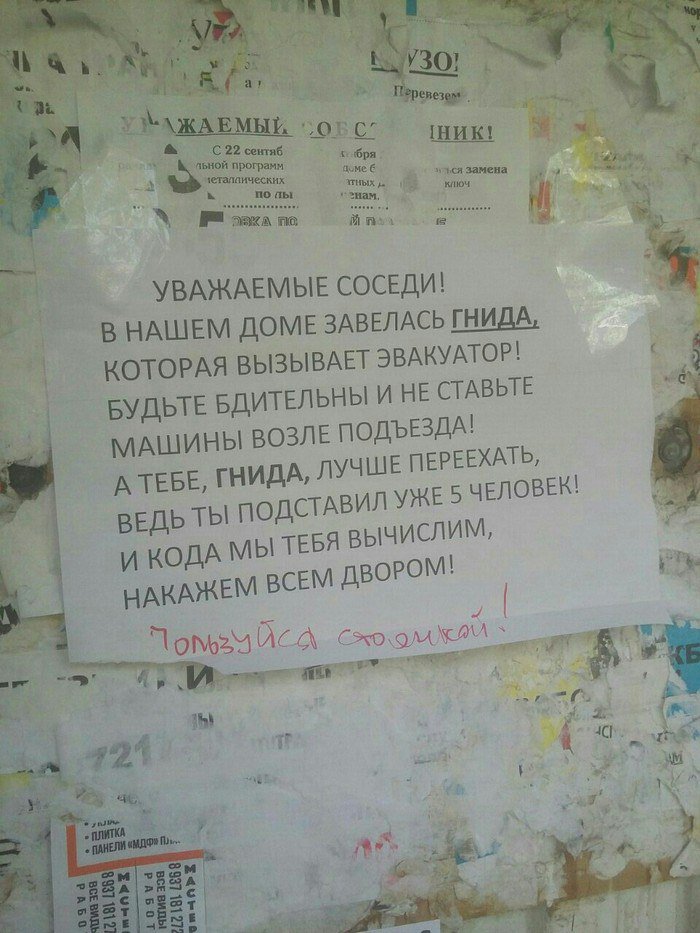 УЗО!
Перевезем
УВАЖАЕМЫЙ СОБСТ НИК!
С 22 сентяб
ьной программ
ться замена
еталлических
ключ
УВАЖАЕМЫЕ СОСЕДИ!
В НАШЕМ ДОМЕ ЗАВЕЛАСЬ ГНИДА,
КОТОРАЯ ВЫЗЫВАЕТ ЭВАКУАТОР!
БУДЬТЕ БДИТЕЛЬНЫ И НЕ СТАВЬТЕ
МАШИНЫ ВОЗЛЕ ПОДЪЕЗДА!
А ТЕБЕ, ГНИДА, ЛУЧШЕ ПЕРЕЕХАТЬ,
ВЕДЬ ТЫ ПОДСТАВИЛ УЖЕ 5 ЧЕЛОВЕК!
И КОДА МЫ ТЕБЯ ВЫЧИСЛИМ,
НАКАЖЕМ ВСЕМ ДВОРОМ!
Пользуйся стоянкой!
721
• ПЛИТКА
• ПАНЕЛИ «МДФ»
МАСТЕР
ВСЕ ВИДЫ
РАБОТ
8 937 181 272
МАСТЕ
ВСЕ ВИДЫ
РАБОТ
8 937 181 27